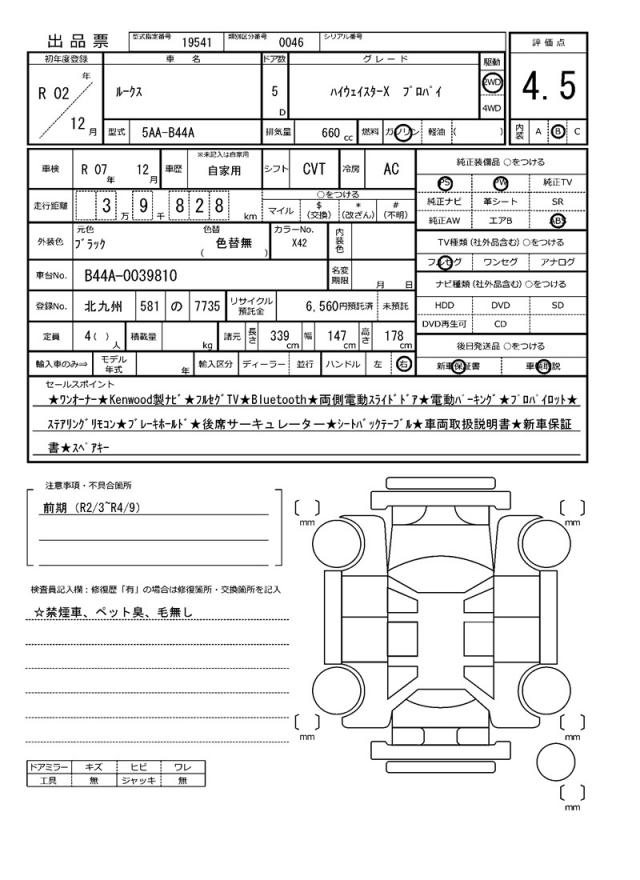 出品票 型式指定番号 19541 類別区分番号 0046 シリアル番号
初年度登録 車名 ドア数 グレード 駆動 評価点
R 02 年 12 月 ルークス 5 D ハイウェイスターX プロパイ 2WD 4WD 4.5
型式 5AA-B44A 排気量 660 cc 燃料 ガソリン 軽油 ( ) 内装 A B C
車検 R 07 年 12 月 車歴 ※未記入は自家用 自家用 シフト CVT 冷房 AC
純正装備品 ○をつける
PS PW 純正TV
純正ナビ 革シート SR
純正AW エアB ABS
走行距離 3 万 9 千 8 2 8 km
○をつける
マイル $ (交換) * (改ざん) # (不明)
外装色 元色 ブラック 色替 ( 色替無 ) カラーNo. X42 内装色
TV種類 (社外品含む) ○をつける
フルセグ ワンセグ アナログ
車台No. B44A-0039810 名変期限 月 日
ナビ種類 (社外品含む) ○をつける
HDD DVD SD
DVD再生可 CD
登録No. 北九州 581 の 7735 リサイクル預託金 6,560円預託済 未預託
定員 4( ) 人 積載量 kg 諸元 長さ 339 cm 幅 147 cm 高さ 178 cm
後日発送品 ○をつける
新車保証書 車輌取説
輸入車のみ⇒ モデル年式 年 輸入区分 ディーラー 並行 ハンドル 左 右
セールスポイント
★ワンオーナー★Kenwood製ナビ★フルセグTV★Bluetooth★両側電動スライドドア★電動パーキング★プロパイロット★
ステアリングリモコン★ブレーキホールド★後席サーキュレーター★シートバックテーブル★車両取扱説明書★新車保証
書★スペアキー
注意事項・不具合箇所
前期 (R2/3~R4/9)
検査員記入欄：修復歴「有」の場合は修復箇所・交換箇所を記入
☆禁煙車、ペット臭、毛無し
mm
mm
mm
mm
mm
ドアミラー キズ ヒビ ワレ
工具 無 ジャッキ 無